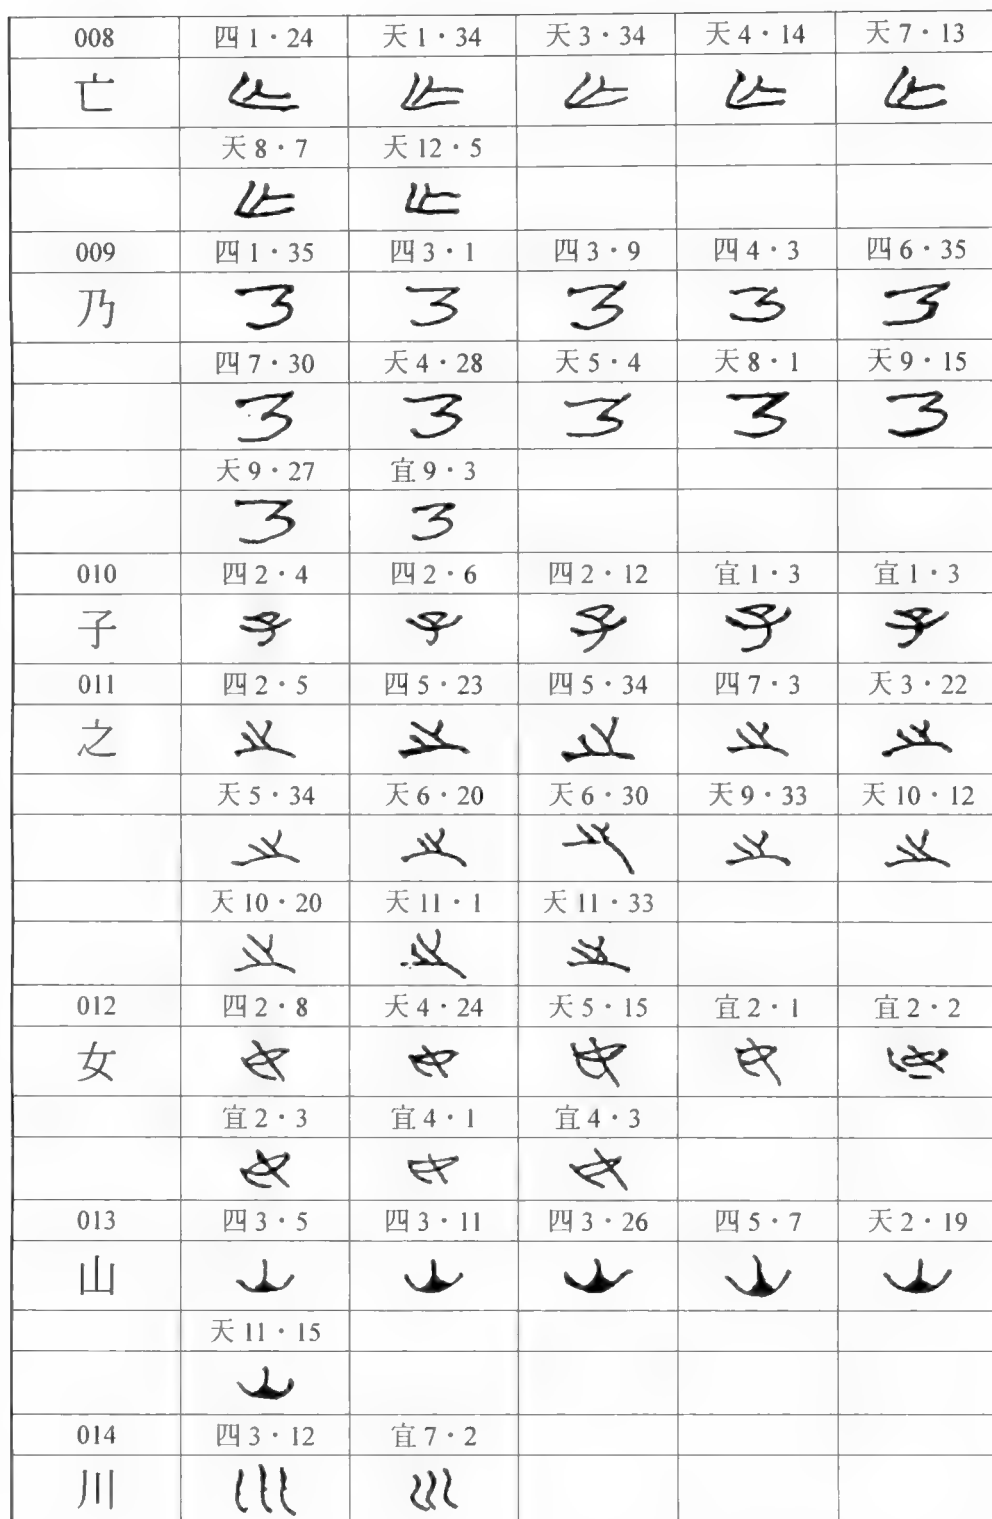 008 四1·24 天1·34 天3·34 天4·14 天7·13
亡
天8·7 天12·5
009 四1·35 四3·1 四3·9 四4·3 四6·35
乃
四7·30 天4·28 天5·4 天8·1 天9·15
天9·27 宜9·3
010 四2·4 四2·6 四2·12 宜1·3 宜1·3
子
011 四2·5 四5·23 四5·34 四7·3 天3·22
之
天5·34 天6·20 天6·30 天9·33 天10·12
天10·20 天11·1 天11·33
012 四2·8 天4·24 天5·15 宜2·1 宜2·2
女
宜2·3 宜4·1 宜4·3
013 四3·5 四3·11 四3·26 四5·7 天2·19
山
天11·15
014 四3·12 宜7·2
川